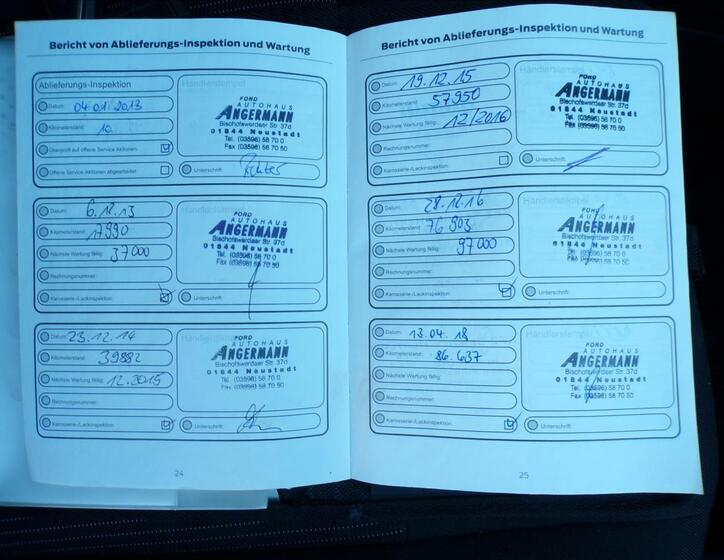 Bericht von Ablieferungs-Inspektion und Wartung
Ablieferungs-Inspektion
Datum: 04.01.2013
Kilometerstand: 10
Überprüft auf offene Service Aktionen:
Offene Service Aktionen abgearbeitet:
Händlerstempel
FORD
AUTOHAUS
ANGERMANN
Bischofswerdaer Str. 37d
01844 Neustadt
Tel. (03596) 58 70 0
Fax (03596) 58 70 50
Unterschrift:
Datum: 6.12.13
Kilometerstand: 17990
Nächste Wartung fällig: 37000
Rechnungsnummer:
Karosserie-/Lackinspektion:
Händlerstempel
FORD
AUTOHAUS
ANGERMANN
Bischofswerdaer Str. 37d
01844 Neustadt
Tel. (03596) 58 70 0
Fax (03596) 58 70 50
Unterschrift:
Datum: 23.12.14
Kilometerstand: 39882
Nächste Wartung fällig: 12.2015
Rechnungsnummer:
Karosserie-/Lackinspektion:
Händlerstempel
FORD
AUTOHAUS
ANGERMANN
Bischofswerdaer Str. 37d
01844 Neustadt
Tel. (03596) 58 70 0
Fax (03596) 58 70 50
Unterschrift:
24
Bericht von Ablieferungs-Inspektion und Wartung
Datum: 19.12.15
Kilometerstand: 57950
Nächste Wartung fällig: 12/2016
Rechnungsnummer:
Karosserie-/Lackinspektion:
Händlerstempel
FORD
AUTOHAUS
ANGERMANN
Bischofswerdaer Str. 37d
01844 Neustadt
Tel. (03596) 58 70 0
Fax (03596) 58 70 50
Unterschrift:
Datum: 28.12.16
Kilometerstand: 76903
Nächste Wartung fällig: 97000
Rechnungsnummer:
Karosserie-/Lackinspektion:
Händlerstempel
FORD
AUTOHAUS
ANGERMANN
Bischofswerdaer Str. 37d
01844 Neustadt
Tel. (03596) 58 70 0
Fax (03596) 58 70 50
Unterschrift:
Datum: 13.04.18
Kilometerstand: 86.637
Nächste Wartung fällig:
Rechnungsnummer:
Karosserie-/Lackinspektion:
Händlerstempel
FORD
AUTOHAUS
ANGERMANN
Bischofswerdaer Str. 37d
01844 Neustadt
Tel. (03596) 58 70 0
Fax (03596) 58 70 50
Unterschrift:
25